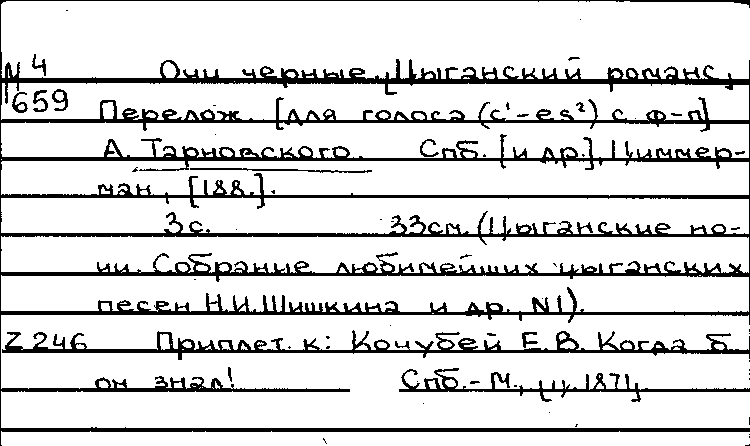 М 4 Очи черные. [Цыганский романс]
659 Перелож. [для голоса (c'-es²) с ф-п]
А. Тарновского. Спб. [и др.], Циммер-
ман, [188.].
3с. 33см. (Цыганские но-
чи. Собрание любимейших цыганских
песен Н.И.Шишкина и др., N1).
Z 246 Приплет. к: Кочубей Е.В. Когда б
он знал! Спб.-М., [ц. 1871].